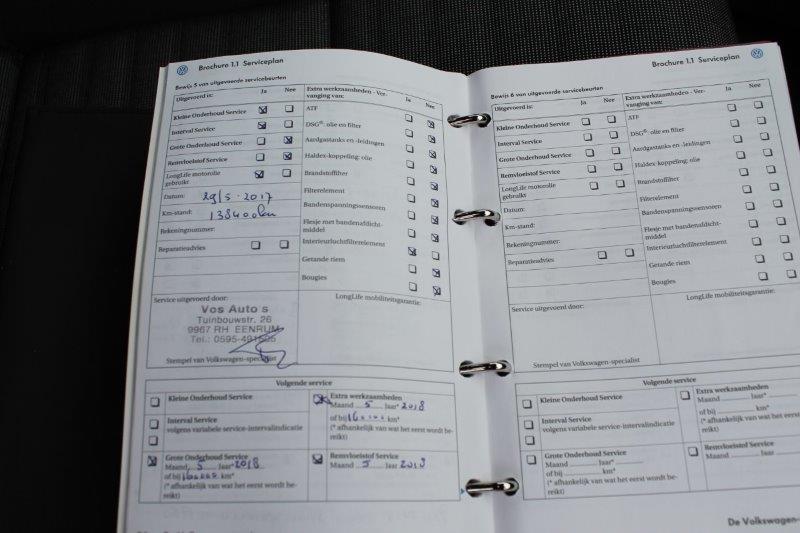 Brochure 1.1 Serviceplan
Bewijs 5 van uitgevoerde servicebeurten
Uitgevoerd is: Ja Nee
Kleine Onderhoud Service
Interval Service
Grote Onderhoud Service
Remvloeistof Service
LongLife motorolie
gebruikt
Datum: 29/5-2017
Km-stand: 138400 km
Rekeningnummer:
Reparatieadvies
Extra werkzaamheden - Ver-
vanging van: Ja Nee
ATF
DSG®: olie en filter
Aardgastanks en -leidingen
Haldex-koppeling: olie
Brandstoffilter
Filterelement
Bandenspanningssensoren
Flesje met bandenafdicht-
middel
Interieurluchtfilterelement
Getande riem
Bougies
Service uitgevoerd door:
Vos Auto s
Tuinbouwstr. 26
9967 RH EENRUM
Tel.: 0595-491525
Stempel van Volkswagen-specialist
LongLife mobiliteitsgarantie:
Volgende service
Kleine Onderhoud Service
Interval Service
volgens variabele service-intervalindicatie
Grote Onderhoud Service
Maand 5 Jaar* 2018
of bij km*
(* afhankelijk van wat het eerst wordt be-
reikt)
Extra werkzaamheden
Maand 5 Jaar* 2018
of bij km*
(* afhankelijk van wat het eerst wordt be-
reikt)
Remvloeistof Service
Maand 5 Jaar 2018
Brochure 1.1 Serviceplan
Bewijs 6 van uitgevoerde servicebeurten
Uitgevoerd is: Ja Nee
Kleine Onderhoud Service
Interval Service
Grote Onderhoud Service
Remvloeistof Service
LongLife motorolie
gebruikt
Datum:
Km-stand:
Rekeningnummer:
Reparatieadvies
Extra werkzaamheden - Ver-
vanging van: Ja Nee
ATF
DSG®: olie en filter
Aardgastanks en -leidingen
Haldex-koppeling: olie
Brandstoffilter
Filterelement
Bandenspanningssensoren
Flesje met bandenafdicht-
middel
Interieurluchtfilterelement
Getande riem
Bougies
Service uitgevoerd door:
Stempel van Volkswagen-specialist
LongLife mobiliteitsgarantie:
Volgende service
Kleine Onderhoud Service
Interval Service
volgens variabele service-intervalindicatie
Grote Onderhoud Service
Maand Jaar*
of bij km*
(* afhankelijk van wat het eerst wordt be-
reikt)
Extra werkzaamheden
Maand Jaar*
of bij km*
(* afhankelijk van wat het eerst wordt be-
reikt)
Remvloeistof Service
Maand Jaar
De Volkswagen-